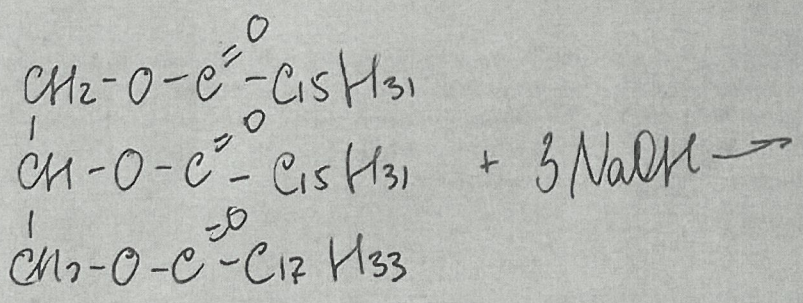 CH2-O-C=O-C15H31
CH-O-C=O-C15H31 + 3NaOH→
CH2-O-C=O-C17H33